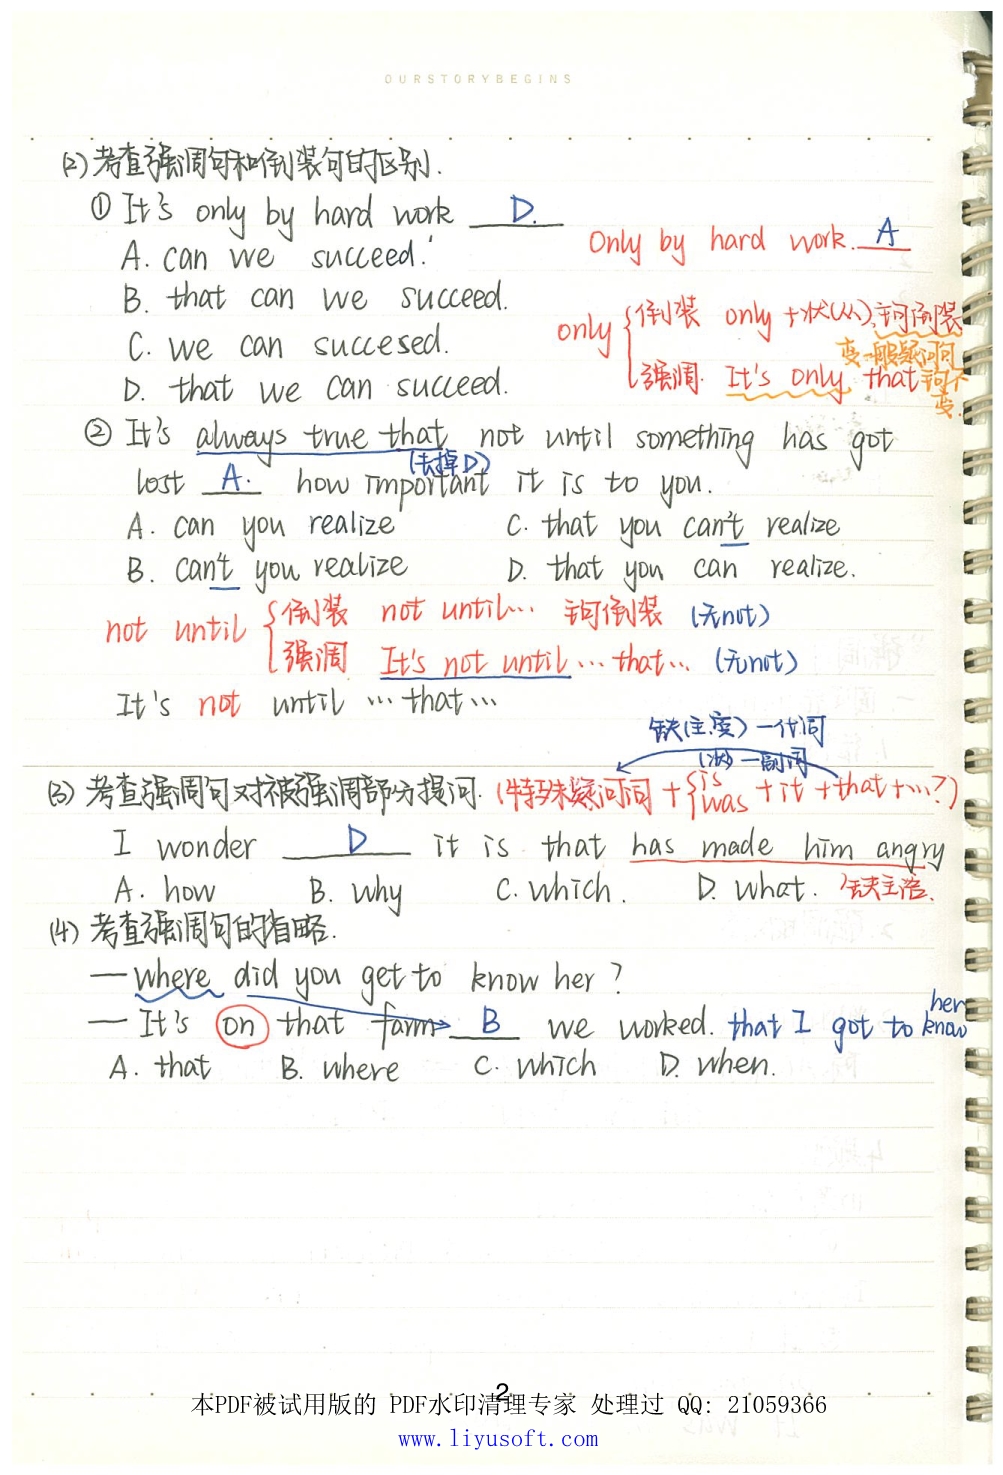 OURSTORYBEGINS
(2) 考查强调句和倒装句的区别.
① It's only by hard work D.
A. can we succeed.
Only by hard work. A
B. that can we succeed.
only { 倒装 only +状(从), 主句倒装
C. we can succesed.
变一般疑问句
强调. It's only that 主句不变.
D. that we can succeed.
② It's always true that not until something has got
(去掉D)
lost A. how important it is to you.
A. can you realize C. that you can't realize
B. can't you realize D. that you can realize.
not until { 倒装 not until… 主句倒装 (无not)
强调 It's not until … that… (无not)
It's not until … that …
缺(主.宾) 一代词
(状) 一副词
(3) 考查强调句对被强调部分提问. (特殊疑问词 + { is was + it + that + …?)
I wonder D it is that has made him angry
A. how B. why C. which. D. what. 缺主语.
(4) 考查强调句的省略.
— where did you get to know her ?
— It's on that farm B we worked. that I got to know her
A. that B. where C. which D. when.
2
本PDF被试用版的 PDF水印清理专家 处理过 QQ: 21059366
www.liyusoft.com